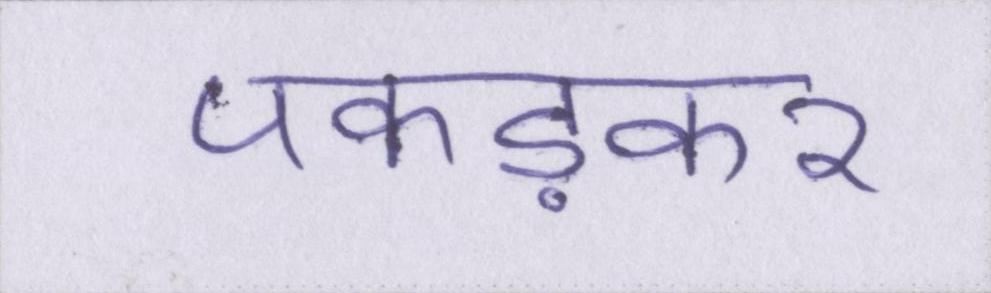 पकड़कर